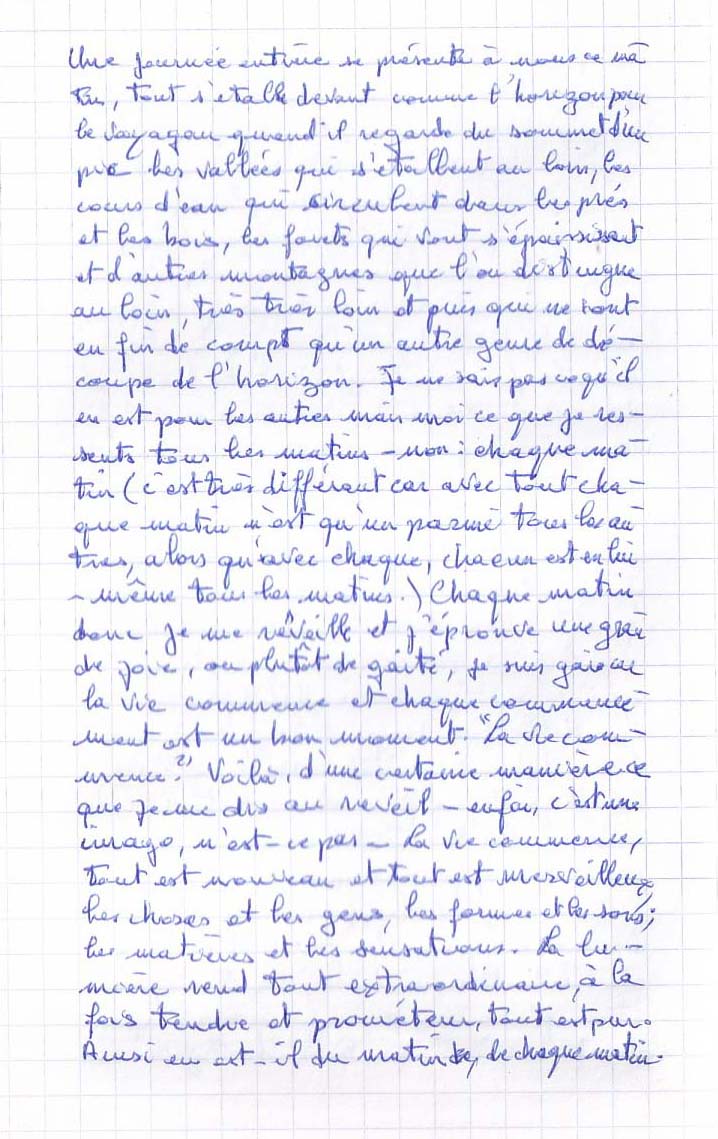 Une journée entière se présente à nous ce ma
tin, tout s'étalle devant comme l'horizon pour
le voyageur quand il regarde du sommet d'un
pic les vallées qui s'étallent au loin, les
cours d'eau qui circulent dans les prés
et les bois, les forêts qui vont s'épaississant
et d'autres montagnes que l'on distingue
au loin, très très loin et puis qui ne sont
en fin de compt qu'un autre genre de dé-
coupe de l'horizon. Je ne sais pas ce qu'il
en est pour les autres mais moi ce que je res-
sents tous les matins – non : chaque ma-
tin (c'est très différant car avec tout cha-
que matin n'est qu'un parmi tous les au
tres, alors qu'avec chaque, chacun est en lui
-même tous les matins.) Chaque matin
donc je me réveille et j'éprouve une gran
de joie, ou plutôt de gaité, je suis gai car
la vie commence et chaque commence-
ment est un bon moment. "La vie com-
mence ?" Voilà, d'une certaine manière ce
que je me dis au réveil – enfin, c'est une
image, n'est-ce pas – La vie commence,
tout est nouveau et tout est merveilleux,
les choses et les gens, les formes et les sons;
les matières et les sensations. La lu-
mière rend tout extraordinaire, à la
fois tendre et prométeur, tout est pur.
Ainsi en est-il du matin, de chaque matin.